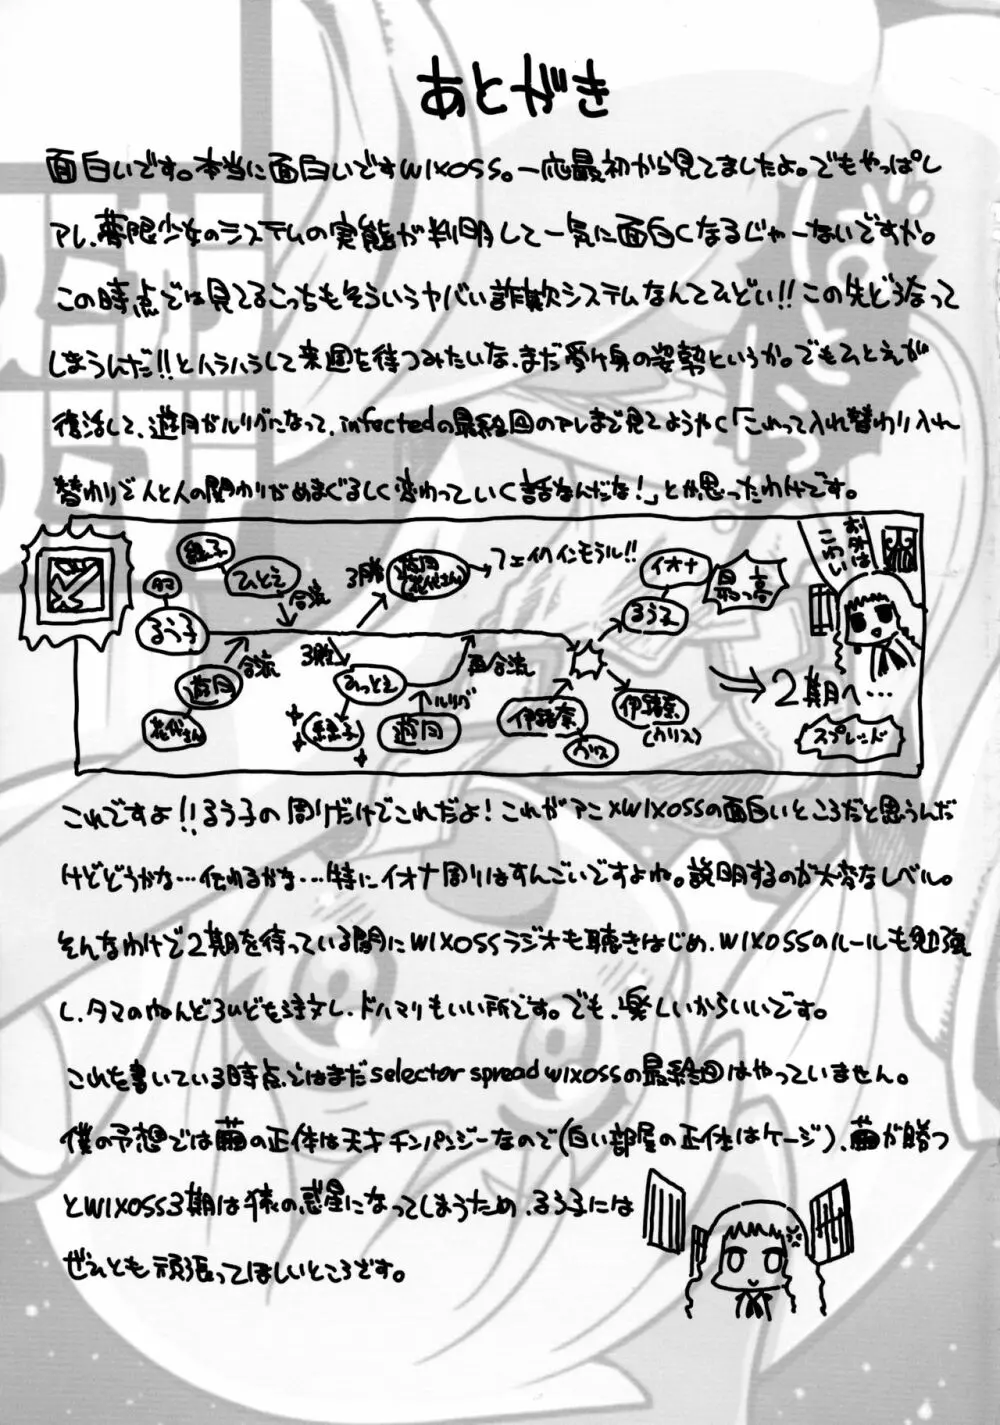 あとがき
面白いです。本当に面白いですWIXOSS。一応最初から見てましたよ。でもやっぱし
アレ、夢限少女のシステムの実態が判明して一気に面白くなるじゃーないですか。
この時点では見てるこっちもそういうヤバい詐欺システムなんてひどい!!この先どうなって
しまうんだ!!とハラハラして来週を待つみたいな、まだ受け身の姿勢というか。でもひとえが
復活して、遊月がルリグになって、infectedの最終回のアレまで見てようやく「これって入れ替わり入れ
替わりで人と人の関わりがめまぐるしく変わっていく話なんだな!」とか思ったわけです。
タマ
るう子
遊月
花代さん
合流
ひとえ
合流
3勝
遊月
(花代さん)
フェイクインモラル!!
3敗
ひとえ
緑子
遊月
ルリグ
再合流
伊緒奈
ウリス
伊緒奈
(ウリス)
るう子
イオナ
最っ高
お外は
こわい
2期へ…
スプレッド
これですよ!!るう子の周りだけでこれだよ!これがアニメWIXOSSの面白いところだと思うんだ
けどどうかな…伝わるかな…特にイオナ周りはすんごいですよね。説明するのが大変なレベル。
そんなわけで2期を待っている間にWIXOSSラジオも聴きはじめ、WIXOSSのルールも勉強
し、タマのねんどろいども注文し、ドハマリもいい所です。でも、楽しいからいいです。
これを書いている時点ではまだselector spread wixossの最終回はやっていません。
僕の予想では繭の正体は天才チンパンジーなので(白い部屋の正体はケージ)、繭が勝つ
とWIXOSS3期は猿の惑星になってしまうため、るう子には
ぜひとも頑張ってほしいところです。